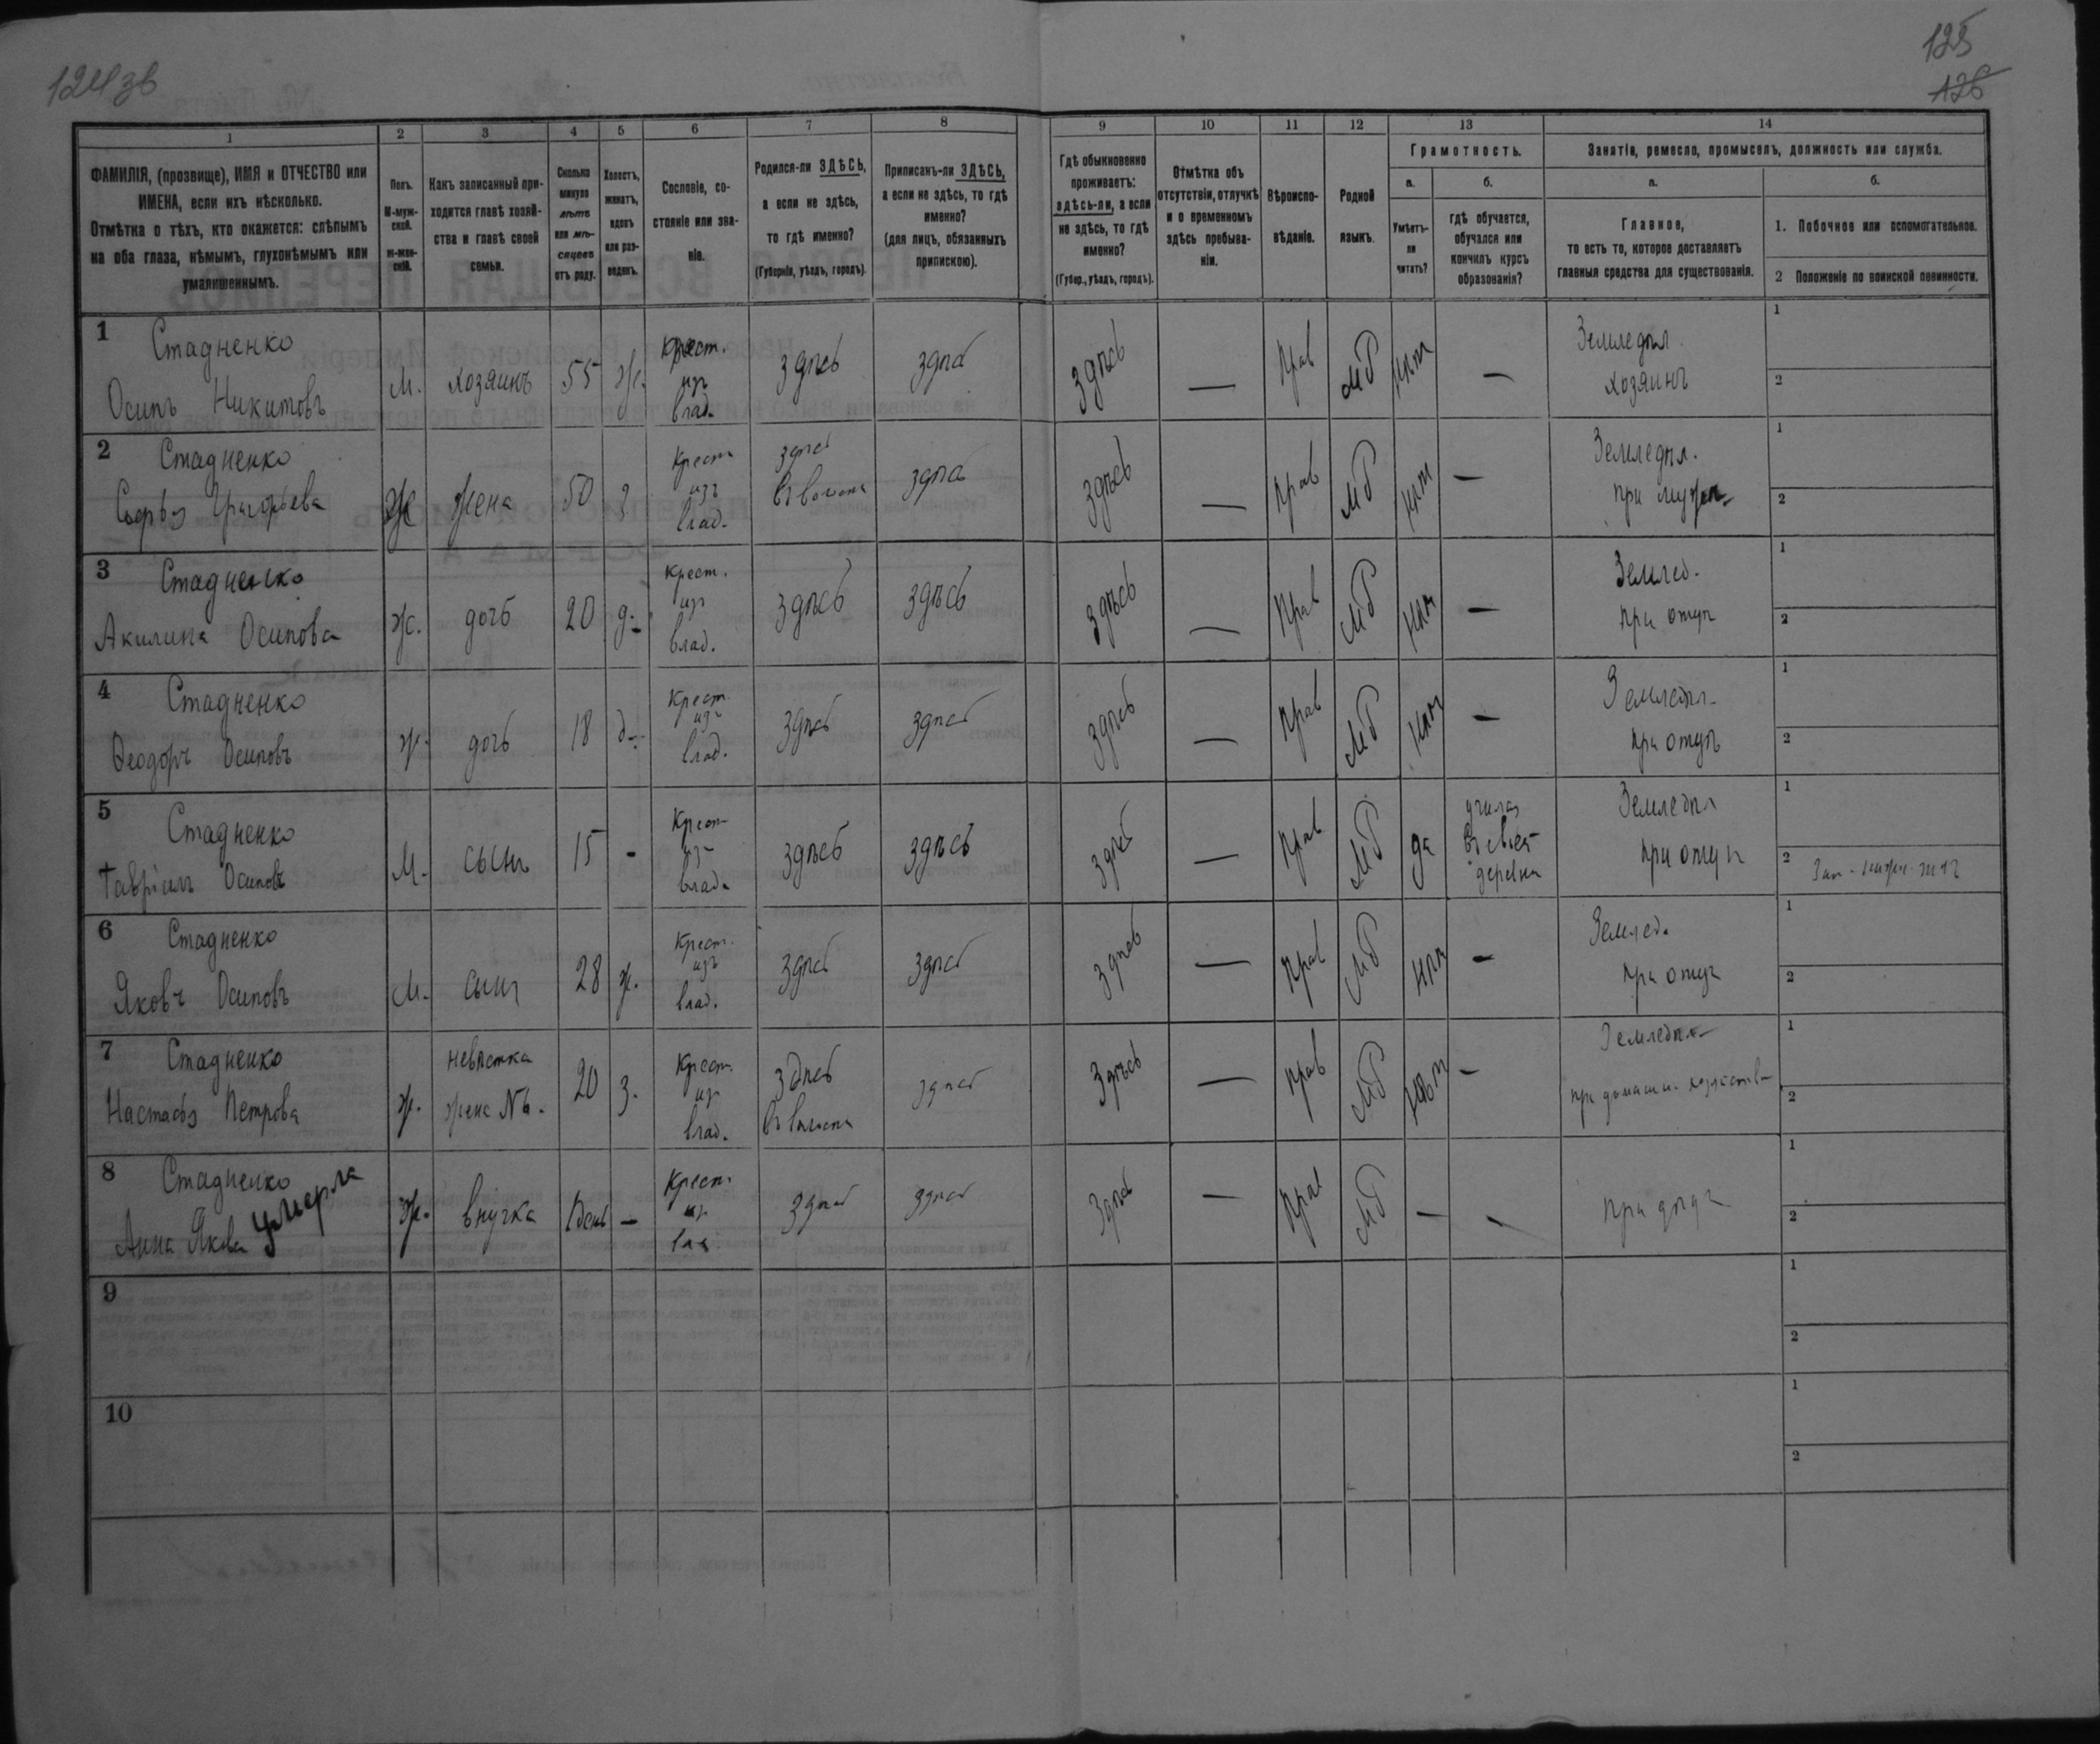 124зв
125
126
1
2
3
4
5
6
7
8
9
10
11
12
13
14
ФАМИЛІЯ, (прозвище), ИМЯ и ОТЧЕСТВО или
ИМЕНА, если ихъ нѣсколько.
Отмѣтка о тѣхъ, кто окажется: слѣпымъ
на оба глаза, нѣмымъ, глухонѣмымъ или
умалишеннымъ.
Полъ.
М-муж-
ской.
ж-жен-
скій.
Какъ записанный при-
ходится главѣ хозяй-
ства и главѣ своей
семьи.
Сколько
минуло
лѣтъ
или мѣ-
сяцевъ
отъ роду.
Холостъ,
женатъ,
вдовъ
или раз-
веденъ.
Сословіе, со-
стояніе или зва-
ніе.
Родился-ли ЗДѢСЬ,
а если не здѣсь,
то гдѣ именно?
(Губернія, уѣздъ, городъ).
Приписанъ-ли ЗДѢСЬ,
а если не здѣсь, то гдѣ
именно?
(для лицъ, обязанныхъ
припискою).
Гдѣ обыкновенно
проживаетъ:
здѣсь-ли, а если
не здѣсь, то гдѣ
именно?
(Губер., уѣздъ, городъ).
Отмѣтка объ
отсутствіи, отлучкѣ
и о временномъ
здѣсь пребыва-
ніи.
Вѣроиспо-
вѣданіе.
Родной
языкъ.
Грамотность.
а.
Умѣетъ-
ли
читать?
б.
гдѣ обучается,
обучался или
кончилъ курсъ
образованія?
Занятіе, ремесло, промыселъ, должность или служба.
а.
Главное,
то есть то, которое доставляетъ
главныя средства для существованія.
б.
1. Побочное или вспомогательное.
2 Положеніе по воинской повинности.
1 Стадненко
Осипъ Никитовъ
М. хозяинъ 55 Ж. Крест.
изъ
влад. здѣсь здѣсь здѣсь — Прав МР Нѣт — Земледѣл.
хозяинъ
1
2
2 Стадненко
Софья Григорьева
Ж жена 50 З Крест
изъ
влад. здѣсь
въ волости здѣсь здѣсь — Прав МР Нѣт — Земледѣл.
при мужѣ
1
2
3 Стадненко
Акилина Осипова
ж. дочь 20 д. Крест.
изъ
влад. здѣсь здѣсь здѣсь — Прав МР Нѣт — Землед.
при отцѣ
1
2
4 Стадненко
Ѳеодоръ Осиповъ
ж. дочь 18 д. Крест.
изъ
влад. здѣсь здѣсь здѣсь — Прав МР Нѣт — Земледѣл.
при отцѣ
1
2
5 Стадненко
Гавріилъ Осиповъ
М. сынъ 15 - Крест
изъ
влад. здѣсь здѣсь здѣсь — Прав МР да
деревни Земледѣл
при отцѣ
1
2
6 Стадненко
Яковъ Осиповъ
М. сынъ 28 ж. Крест.
изъ
влад. здѣсь здѣсь здѣсь — Прав МР Нѣт — Землед.
при отцѣ
1
2
7 Стадненко
Настасья Петрова
ж. невѣстка
жена №6. 20 З. Крест.
изъ
влад. здѣсь
въ волости здѣсь здѣсь — Прав МР Нѣт — Земледѣл
при домашн. хозяйствѣ
1
2
8 Стадненко
Анна Якова умерла
Ж. внучка 1 день — Крест.
изъ
влад. здѣсь здѣсь здѣсь — Прав МР — — при дѣдѣ
1
2
9
1
2
10
1
2